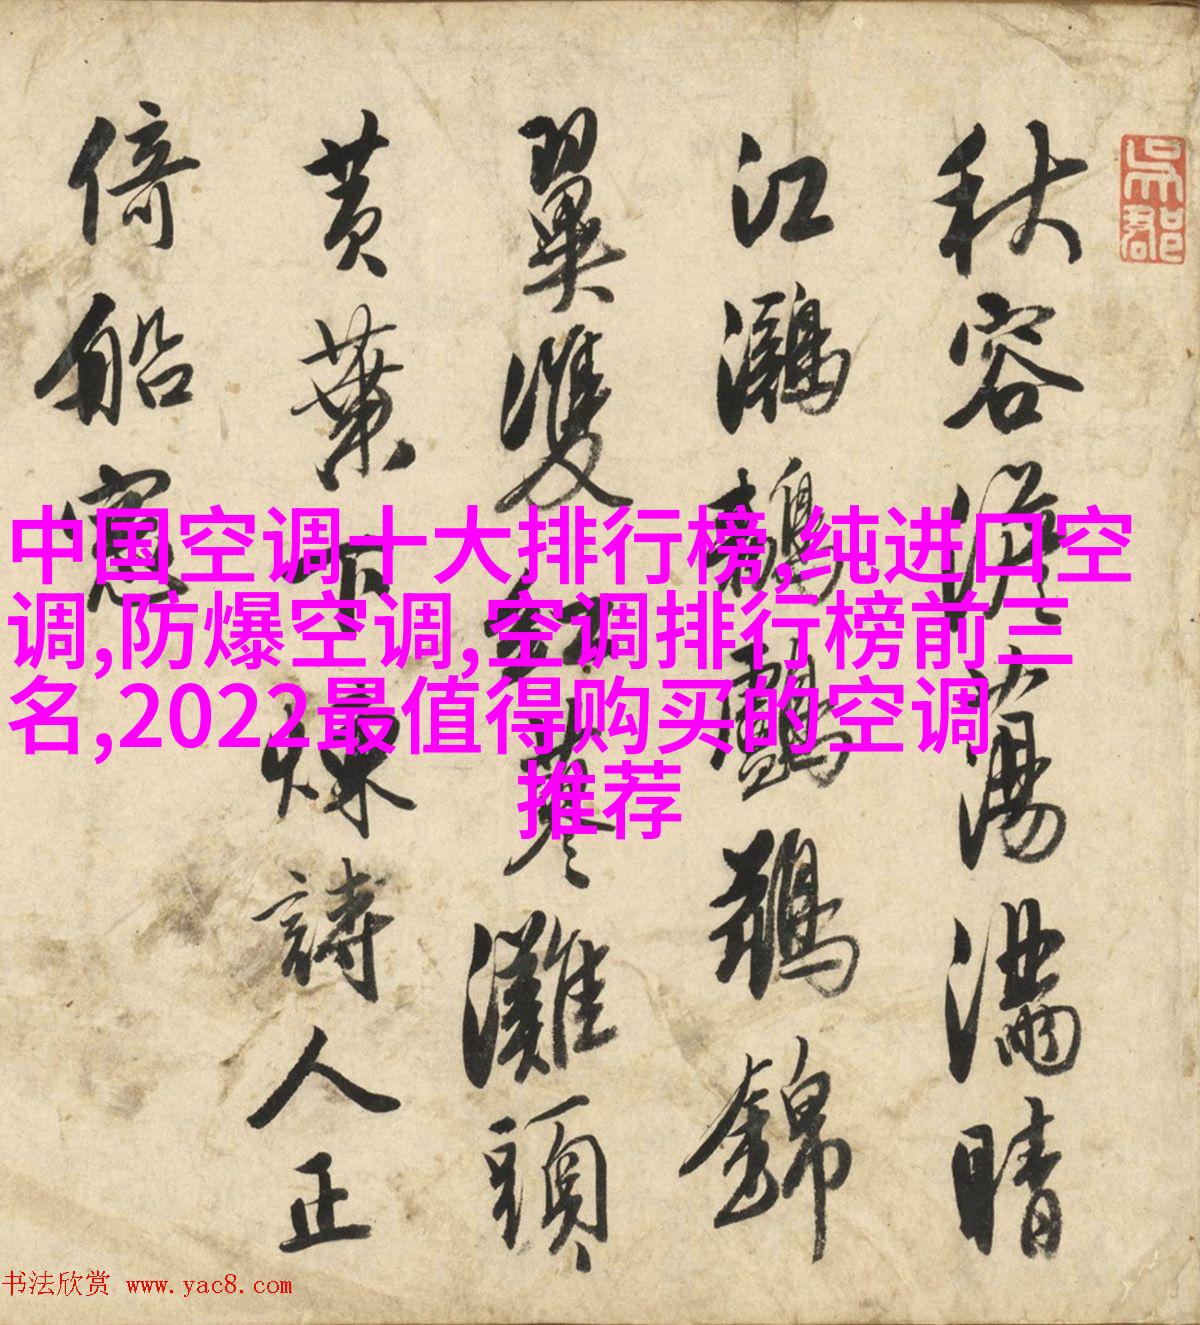 吳郡
秋容澹蕩滿晴
江鸂鶒鸕鶿錦
翼雙紅蓼灘頭
黄葉下煉詩人正
倚船窓
中国空调十大排行榜,纯进口空
调,防爆空调,空调排行榜前三
名,2022最值得购买的空调
推荐
书法欣赏 www.yac8.com